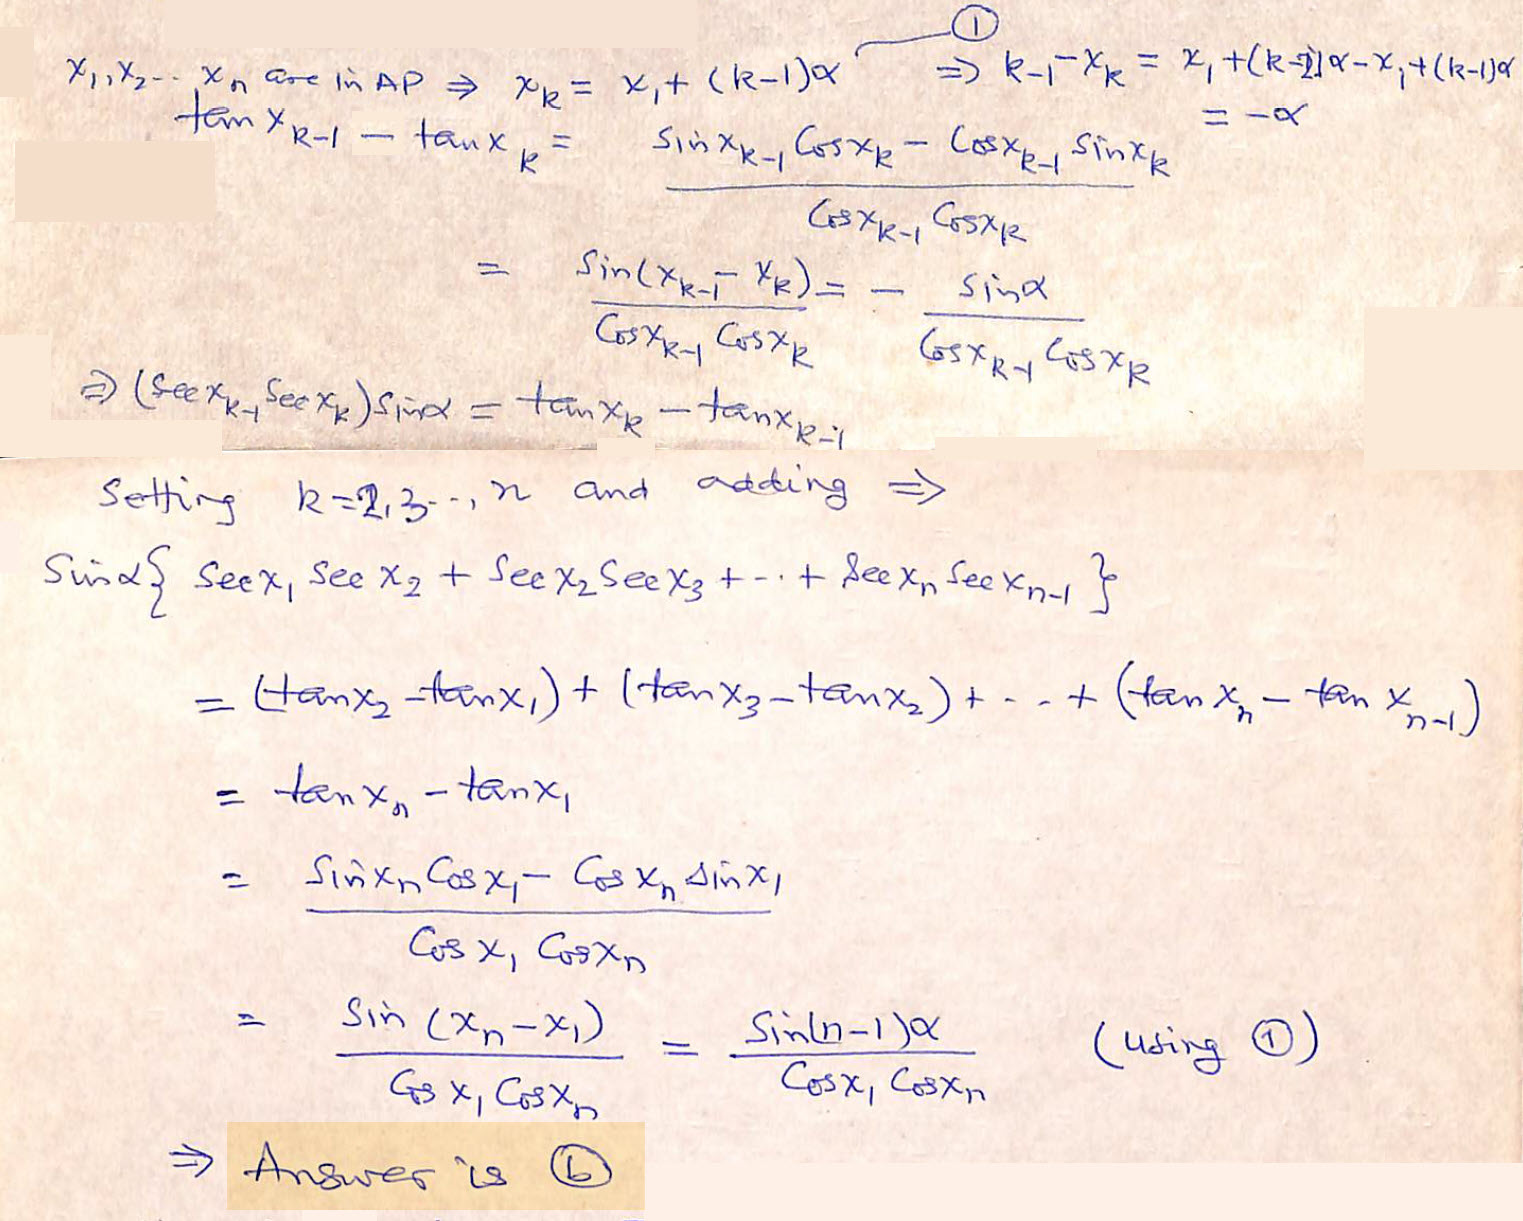 ①
x₁, x₂ -- xₙ are in AP ⇒ xₖ = x₁ + (k-1)α ⇒ k-1 - xₖ = x₁ + (k-2)α - x₁ + (k-1)α
= -α
tan xₖ₋₁ - tan xₖ = (Sin xₖ₋₁ Cos xₖ - Cos xₖ₋₁ Sin xₖ) / (Cos xₖ₋₁ Cos xₖ)
= Sin(xₖ₋₁ - xₖ) / (Cos xₖ₋₁ Cos xₖ) = - Sin α / (Cos xₖ₋₁ Cos xₖ)
⇒ (Sec xₖ₋₁ Sec xₖ) Sin α = tan xₖ - tan xₖ₋₁
Setting k = 2, 3 --, n and adding ⇒
Sin α { Sec x₁ Sec x₂ + Sec x₂ Sec x₃ + -- + Sec xₙ Sec xₙ₋₁ }
= (tan x₂ - tan x₁) + (tan x₃ - tan x₂) + - - + (tan xₙ - tan xₙ₋₁)
= tan xₙ - tan x₁
= (Sin xₙ Cos x₁ - Cos xₙ Sin x₁) / (Cos x₁ Cos xₙ)
= Sin (xₙ - x₁) / (Cos x₁ Cos xₙ) = Sin(n-1)α / (Cos x₁ Cos xₙ) (using ①)
⇒ Answer is ⓑ